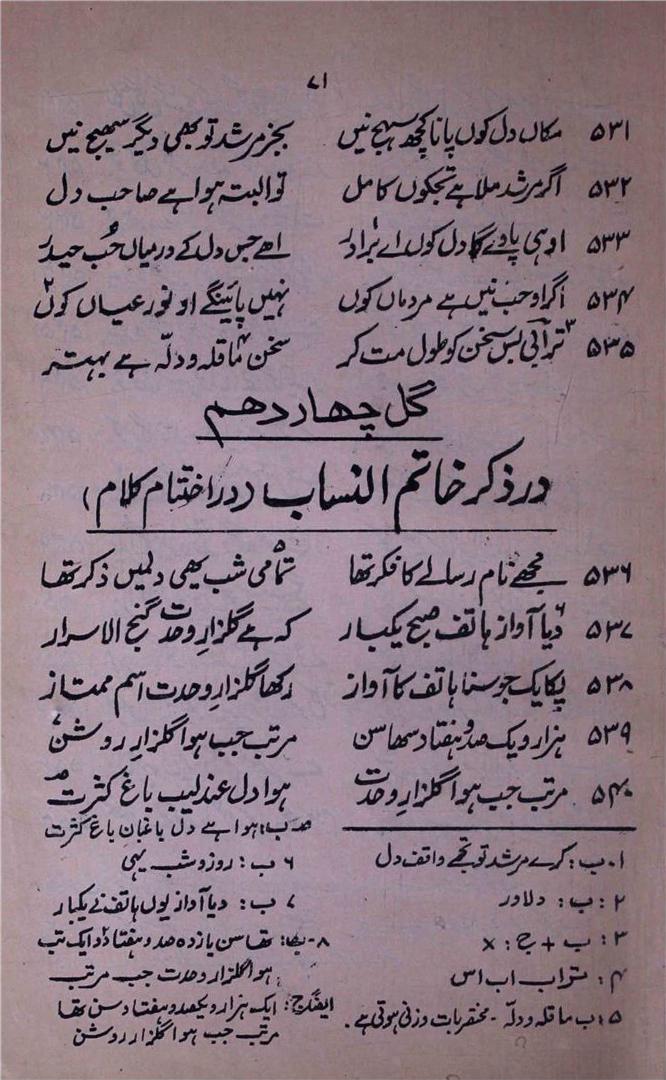 ۷۱
۵۳۱ مکاں دل کوں پانا کچھ سہج نیں بجز مرشد تو بھی دیگر سمجھ نیں
۵۳۲ اگر مرشد ملا ہے تجکوں کامل تو البتہ ہوا ہے صاحب دل
۵۳۳ اوہی پاوے گا دل کوں اے برادر اہے جس دل کے درمیاں حُب حیدر
۵۳۴ اگر او حب نیں ہے مردماں کوں نہیں پائینگے او نور عیاں کوں ۲
۵۳۵ ۳ ترابی بس سخن کو طول مت کر سخن ۴ ماقلہ و دلّہ ہے بہتر
گل چھاردھم
در ذکر خاتم النساب (در اختتام کلام)
۵۳۶ مجھے نام رسالے کا فکر تھا تمامی ۵ شب بھی دلمیں ذکر تھا
۵۳۷ دیا ۶ آواز ہاتف صبح یکبار کہ ہے گلزارِ وحدت گنج الاسرار
۵۳۸ یکایک جو سنا ہاتف کا آواز رکھا گلزارِ وحدت اسم ممتاز
۵۳۹ ہزار و یک صد و ہفتاد تھا سن مرتب جب ہوا گلزارِ روشن
۵۴۰ مرتب جب ہوا گلزارِ وحدت ہوا دل عندلیب باغ کثرت
۱۔ ب: کرے مرشد تو تجے واقف دل
۲: ب: دلاور
۳: ب + ج: x
۴: تراب اب اس
۵: ب ماقلہ و دلّہ ۔ مختصر بات وزنی ہوتی ہے۔
ب: ہوا ہے دل باغبان باغ کثرت
۶ ب: روز و شب یہی
۷ ب: دیا آواز یوں ہاتف نے یکبار
۸۔ تھا سن یازدہ صد و ہفتاد و ایک تب
ہوا گلزار وحدت جب مرتب
ایضاً ج: ایک ہزار و یکصد و ہفتاد سن تھا
مرتب جب ہوا گلزار روشن